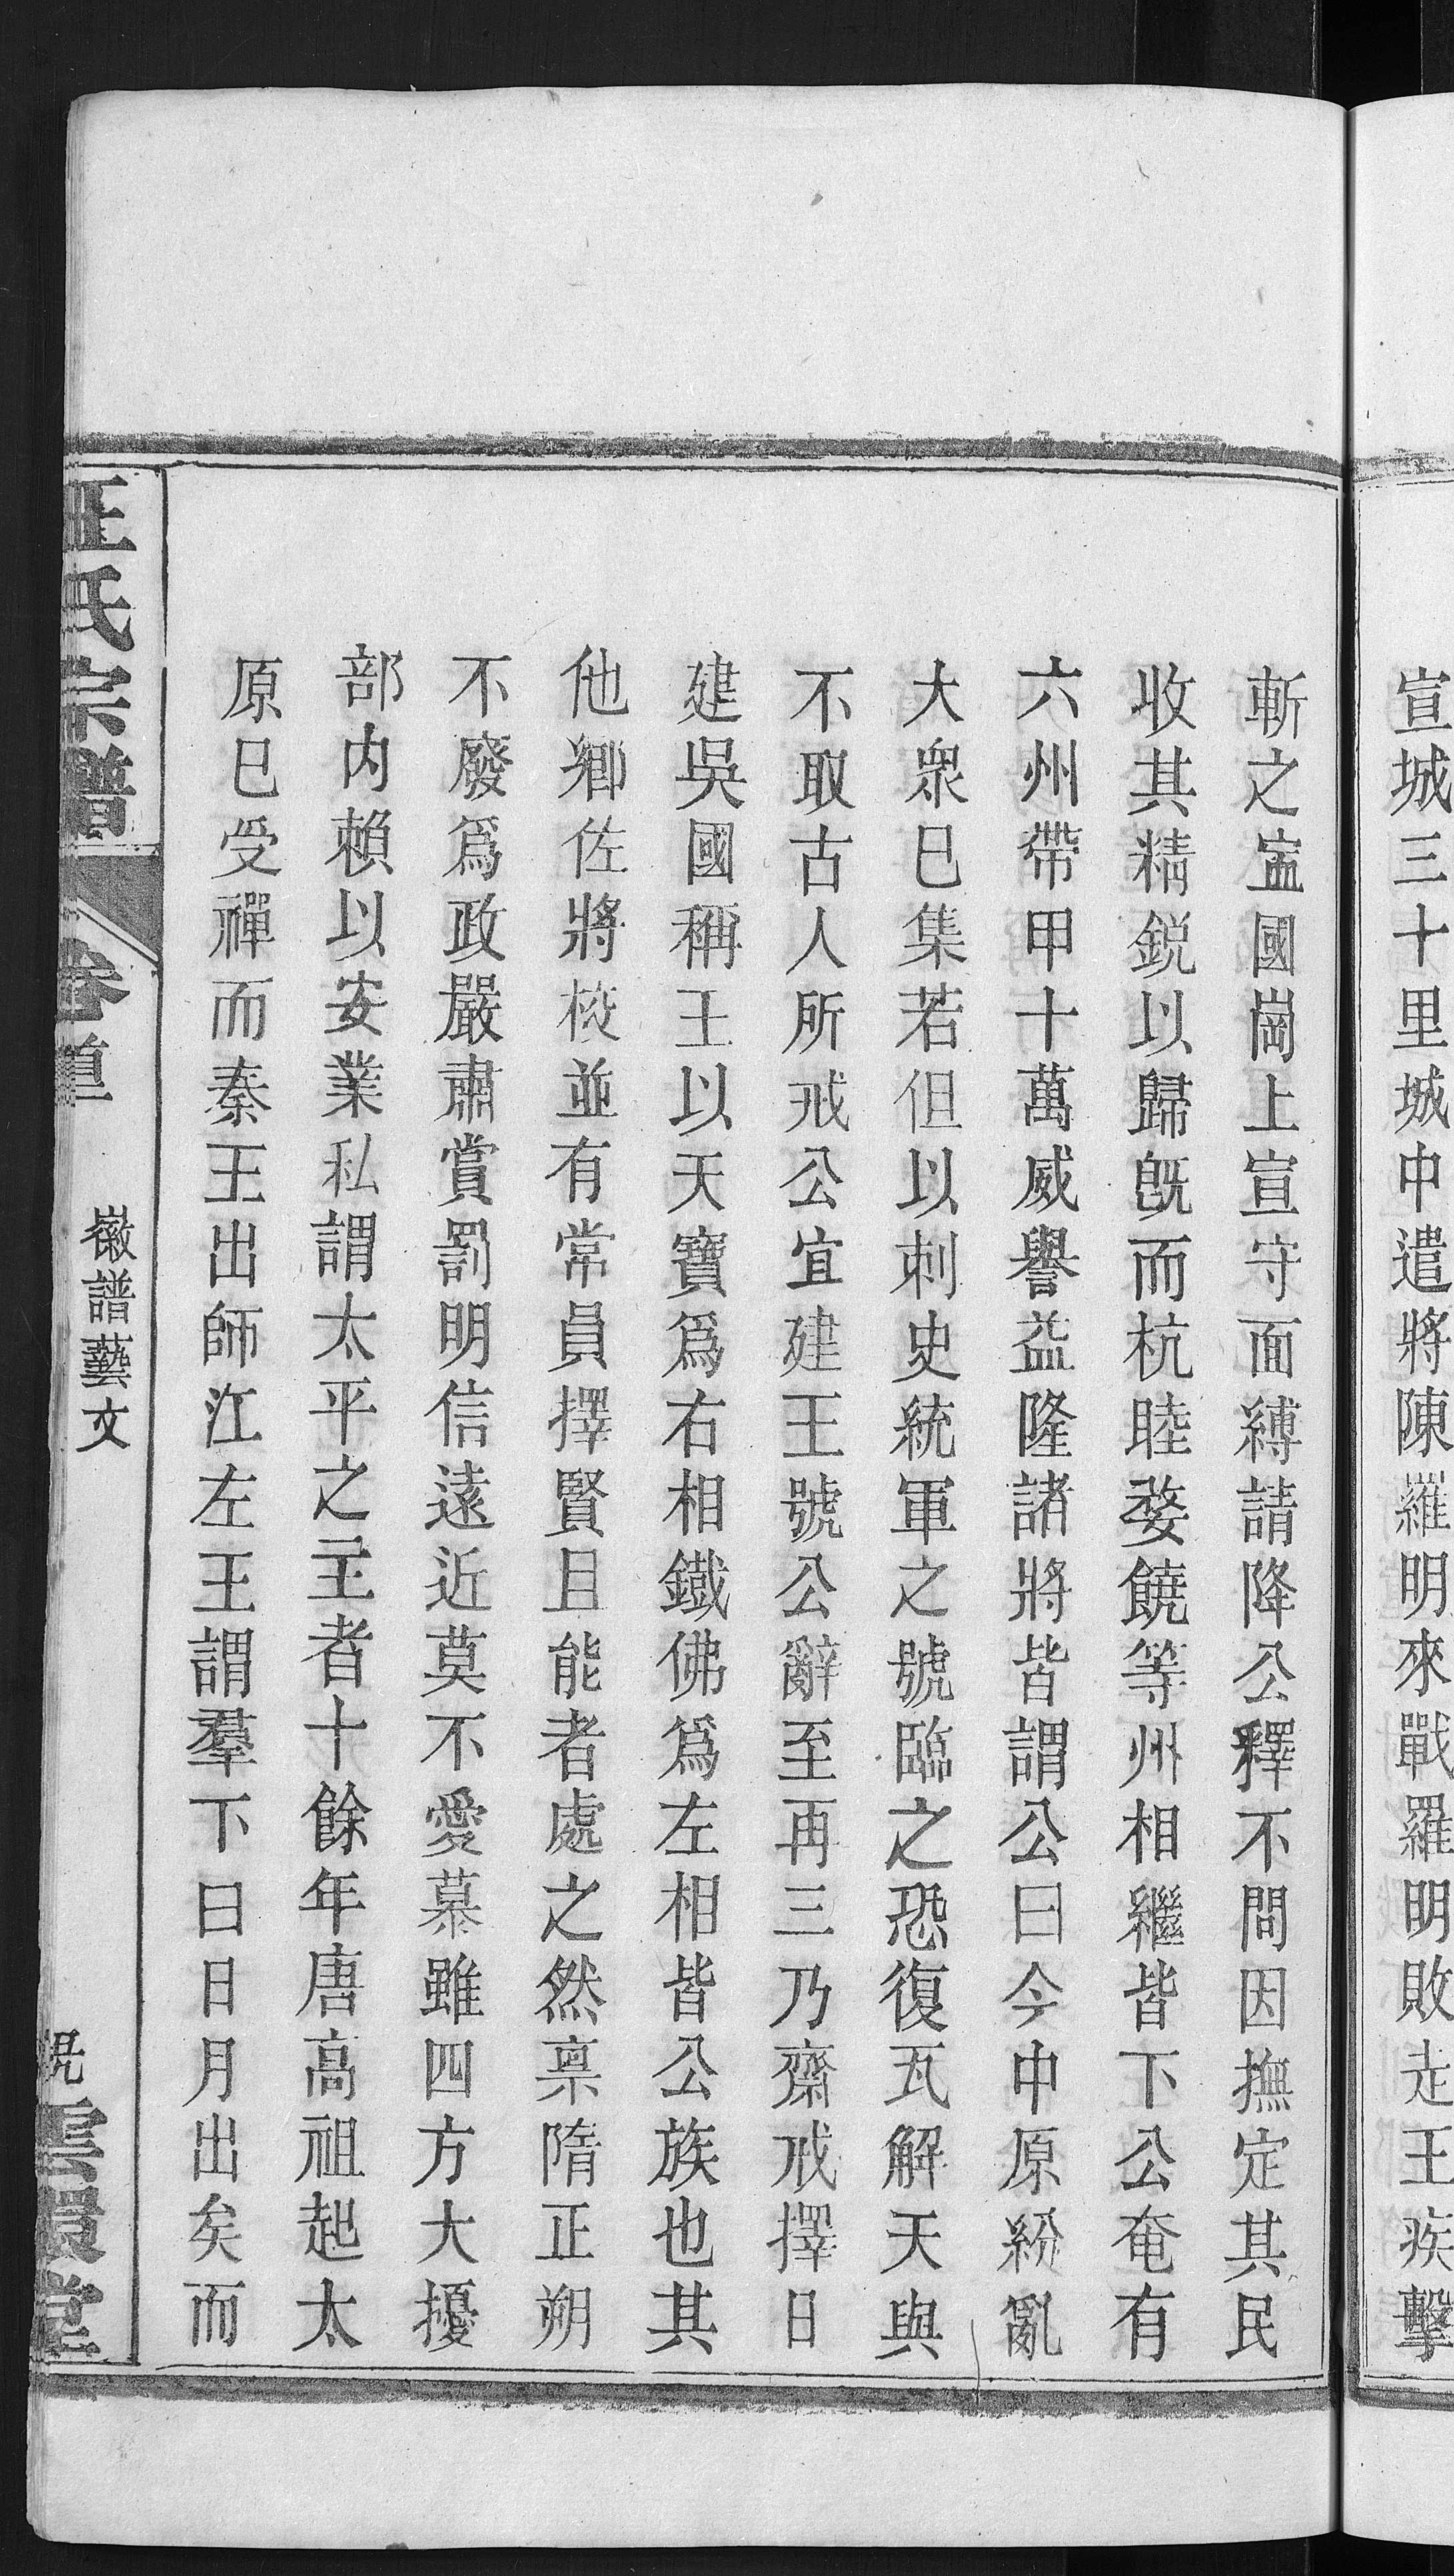 宣城三十里城中遣將陳羅明來戰羅明敗走王疾擊
斬之寍國崗上宣守面縛請降公釋不問因撫定其民
收其精銳以歸旣而杭睦婺饒等州相繼皆下公奄有
六州帶甲十萬威譽益隆諸將皆謂公曰今中原紛亂
大衆已集若但以刺史統軍之號臨之恐復瓦解天與
不取古人所戒公宜建王號公辭至再三乃齋戒擇日
建吳國稱王以天寶爲右相鐵佛爲左相皆公族也其
他鄉佐將校並有常員擇賢且能者處之然稟隋正朔
不廢爲政嚴肅賞罰明信遠近莫不愛慕雖四方大擾
部內賴以安業私謂太平之主者十餘年唐高祖起太
原已受禪而秦王出師江左王謂羣下曰日月出矣而
汪氏宗譜 卷首 徽譜藝文 雲環堂